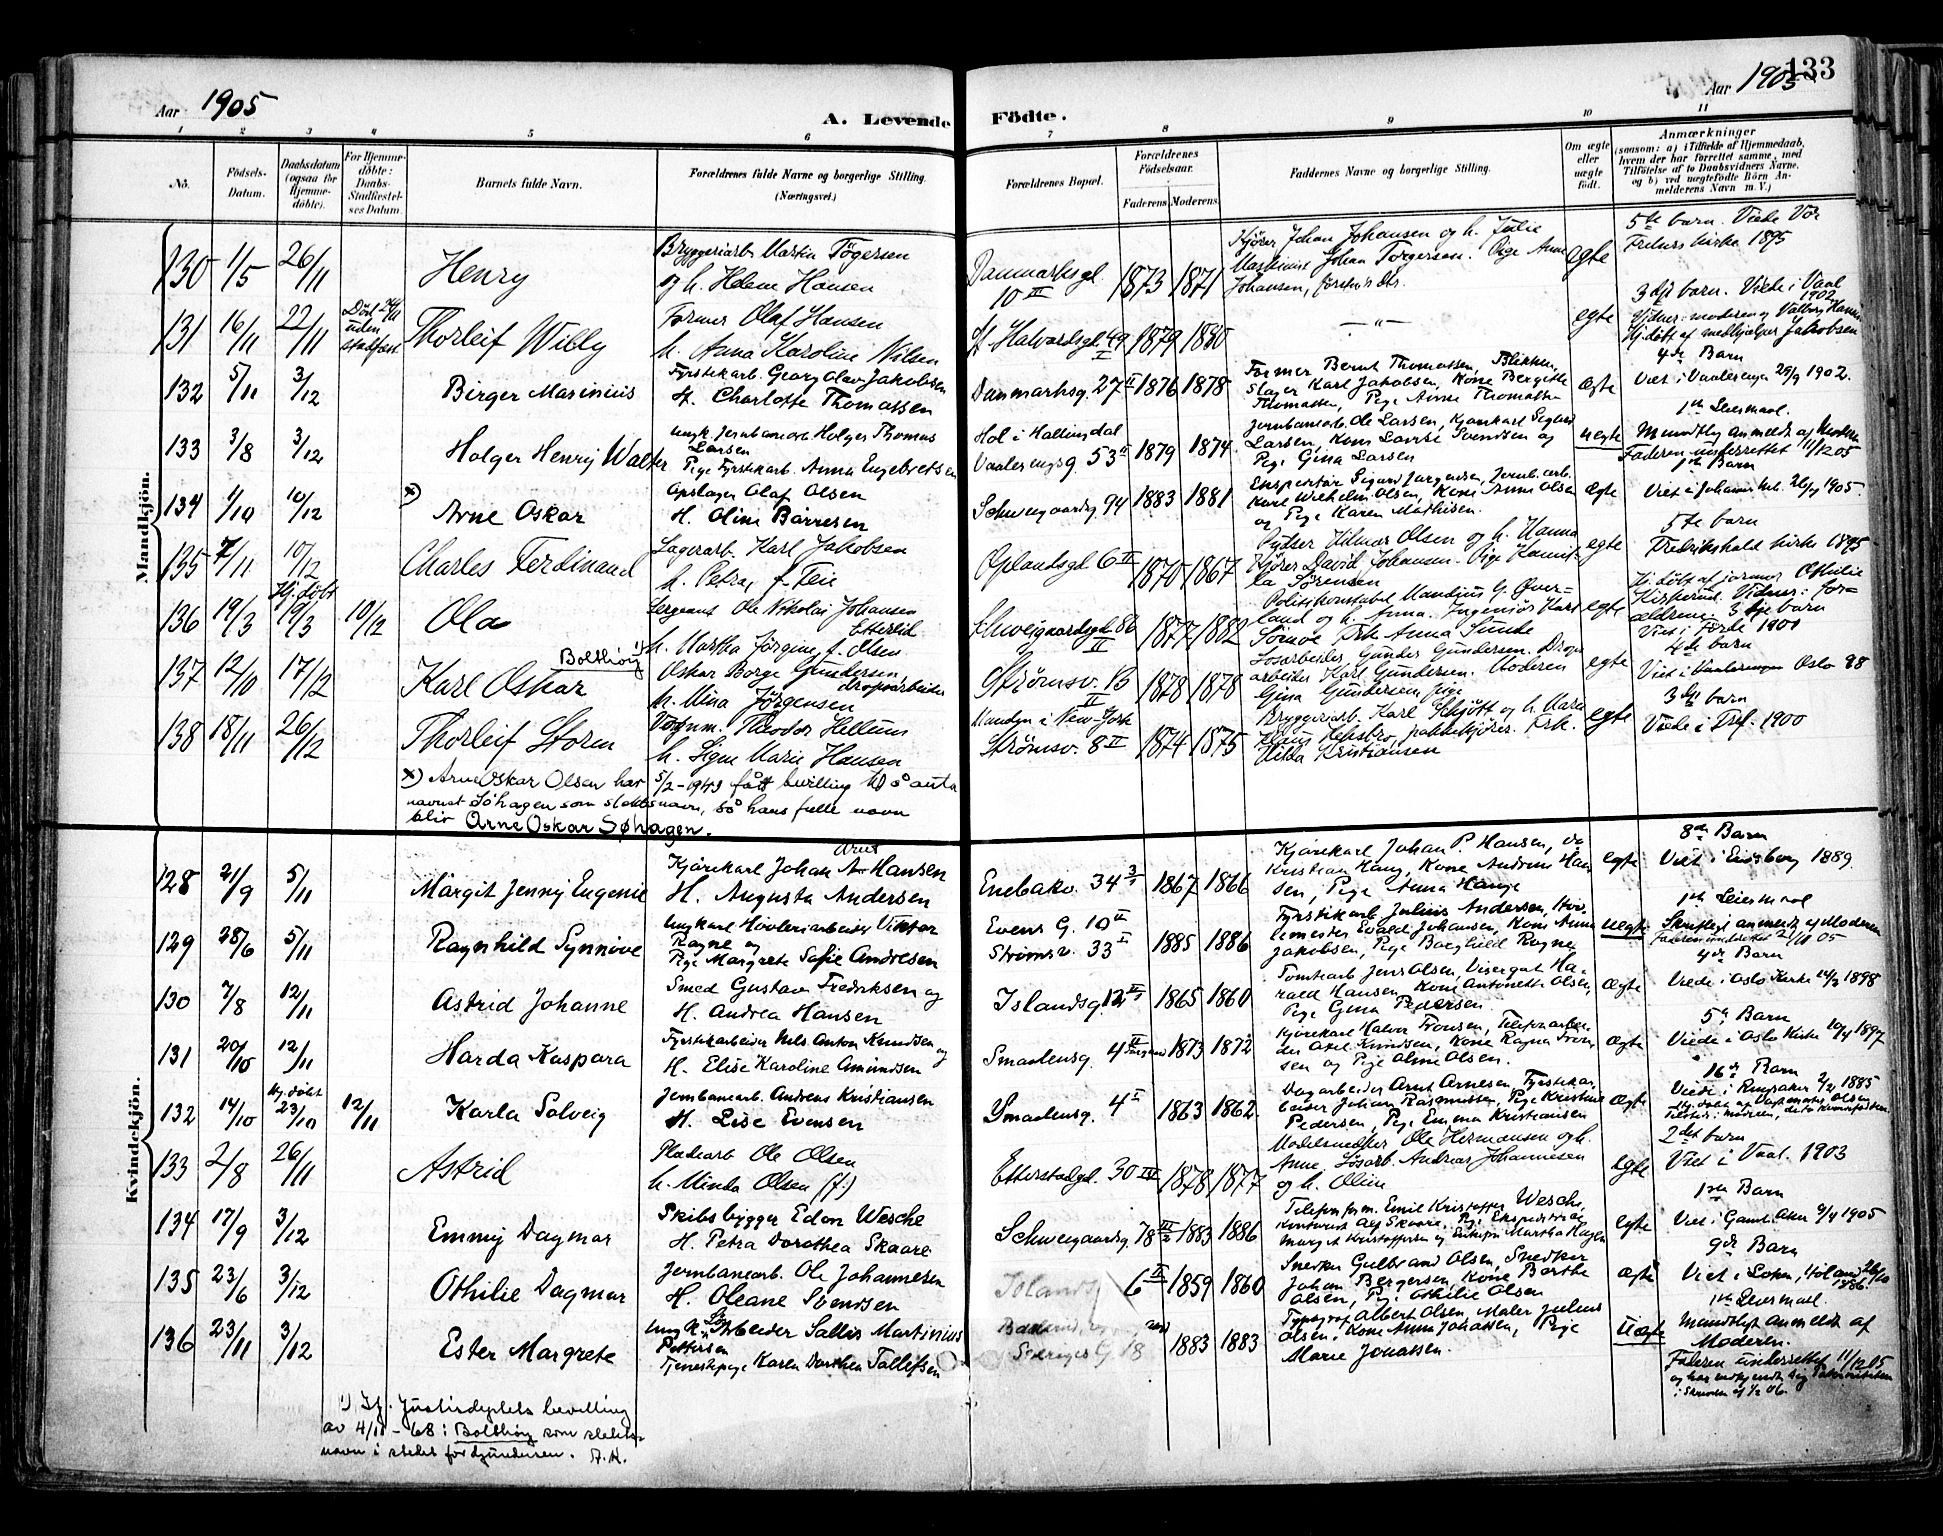 Aar 1905
A. Levende Födte.
Aar 1905
133
1 2 3 4 5 6 7 8 9 10 11
No.
Födsels-Datum.
Daabsdatum (ogsaa for Hjemme-döbte).
For Hjemme-döbte: Daabs-Stadfæstel-ses Datum.
Barnets fulde Navn.
Forældrenes fulde Navne og borgerlige Stilling. (Næringsvei.)
Forældrenes Bopæl.
Forældrenes Födselsaar.
Faderens. Moderens.
Faddernes Navne og borgerlige Stilling.
Om ægte eller uægte födt.
Anmærkninger
(saasom: a) i Tilfælde af Hjemmedaab, hvem der har forrettet samme, med Tilföielse af to Daabsvidners Navne, og b) ved uægtefödte Börn An-melderens Navn m. V.)
Mandkjön.
130 1/5 26/11 Henry
Bryggeriarb. Martin Tögersen
og h. Helene Hansen
Danmarksgd. 10 III 1873 1871
Kjörer Johan Johansen og h. Julie
Maskinist Johan Torgersen. Pige Anne
Johansen,
egte
5te barn. Viede Vor
Frelsers kirke 1895
131 16/11 22/11 Död uden stadfæst. Thorleif Willy
Former Olaf Hansen
h. Anna Karoline Nilsen
St. Halvardsgd. 49 I 1879 1880
— „ —
egte
3die barn. Viede i Vaal 1902
Vidner: moderen og Valborg Hansen
Hj. döbt af medhjælper Jakobsen
132 5/11 3/12 Birger Marinius
Fyrstikarb. Georg Olav Jakobsen
H. Charlotte Thomassen
Danmarksg. 27 II 1876 1878
Former Bernt Thomassen, Blikken-
slager Karl Jakobsen, Kone Bergitte
Thomassen, Pige Anne Thomassen
ægte
4de Barn
Viet i Vaalerengen 28/9 1902.
133 3/8 3/12 Holger Henry Walter
Ungk. Jernbanearb. Holger Thomas
Larsen
Pige Fyrstikarb. Anna Engebretsen
Hol i Hallingdal
Vaalerengsg. 53 II 1879 1874
Jernbanearb. Ole Larsen, Ungkarl Sigurd
Larsen, Kone Lovise Svendsen og
Pige Gina Larsen
uegte
1ste Leiermaal.
Mundtlig anmeldt af Moderen
Faderen underrettet 11/12 05
134 1/10 10/12 x) Arne Oskar
Opslager Olaf Olsen
H. Oline Börresen
Schweigaardsg. 94 1883 1881
Ekspeditör Sigurd Jørgensen, Jernb. arb.
Karl Wilhelm Olsen, Kone Anne Olsen
og Pige Karen Mathisen.
ægte
1ste Barn
Viet i Johannes kirke 26/7 1905.
135 7/11 10/12 Charles Ferdinand
Lagerarb. Karl Jakobsen
h. Petra, f. Teie
Oplandsgd. 6 II 1870 1867
Pudser Hilmar Olsen og h. Hanna
Kjörer David Johansen. Pige Kamil-
la Sörensen
egte
5te barn
Fredrikshald kirke 1895
136 19/3 Hj. döbt 19/3 10/12 Ola
Sergeant Ole Nikolai Johansen
Etterlid
h. Martha Jørgine f. Olsen
Schweigaardsgd. 86 II 1877 1882
Politikonstabel Mandius G. Över-
land og h. Anna. Ingeniör Karl
Frk Anna Sunde
egte
Hj. döbt af jormor Othilie
Kirkerud. Vidner: for-
ældrene. 3die barn
Viet i Förde 1901
137 12/10 17/12 Karl Oskar Bolthöy 1)
Oskar Borge Gundersen,
dropsarbeider
h. Mina Jörgensen
Strömsv. 13 II 1878 1878
Lösarbeider Gunder Gundersen. Drops
arbeider Karl Gundersen. Moderen
Gina Gundersen pige
egte
4de barn
Viet i Oslo 98
138 18/11 26/12 Thorleif Storm
Theodor Hellum
h. Signe Marie Hansen
Manden i New-York
Strömsv. 8 II 1874 1875
Bryggeriarb. Karl Schjött og h. Mara
pakkekjörer. Frk.
Hilda Kristiansen
egte
3die barn
Viede i 1900
x) Arne Oskar Olsen har 5/2-1943 fått bevilling til å anta
navnet Søhagen som slektsnavn, så hans fulle navn
blir Arne Oskar Søhagen.
Kvindekjön.
128 2/9 5/11 Margit Jenny Eugenie
Kjörekarl Johan Arnt Hansen
H. Augusta Andersen
Enebakv. 34 3/1 1867 1866
Kjörekarl Johan P. Hansen, do
Kristian Haug, Kone Andrine Han
sen, Pige Anna Hauge
egte
8de Barn
Viet i Eidsberg 1889.
129 28/6 5/11 Ragnhild Synnöve
Ungkarl Hovleriarbeider Viktor
Ragne og
Pige Margrete Sofie Andresen
Evens G. 10 II
Strömsv. 33 I 1885 1886
Fyrstikarb Julius Andersen, Höv-
lemester Evald Johansen, Kone Anna
Jakobsen, Pige Borghild Ragne
uegte
1ste Leiermaal
Skriftligt anmeldt af Moderen
Faderen underrettet 2/11 05
130 7/8 12/11 Astrid Johanne
Smed Gustav Fredriksen og
H. Andrea Hansen
Islandsg. 12 1865 1860
Tomtearb Jens Olsen, Visergut Ha-
rald Hansen, Kone Antonette Olsen,
Pige Gina Pedersen
ægte
4de Barn
Viede i Oslo Kirke 14/3 1898
131 20/10 12/11 Harda Kaspara
Fyrstikarbeider Nils Anton Knudsen og
H. Elise Karoline Amundsen
Smaalensg. 4 II 1873 1872
Kjörekarl Halvor Fronsen, Telefonarbei-
der Axel Knudsen, Kone Ragna Fron
sen og Pige Aline Olsen.
ægte
5te Barn
Viede i Oslo Kirke 10/4 1897
132 14/10 Hj. döbt 23/10 12/11 Karla Solveig
Jernbanearb. Andreas Kristiansen
H. Lise Evensen
Smaalensg. 4 I 1863 1862
Dagarbeider Arnt Arnesen, Fyrstikar-
beider Johan Rasmussen, Pige Kristine
Pedersen, Pige Emma Kristiansen
ægte
16de Barn
Viede i Ringsaker 2/2 1885
133 2/8 26/11 Astrid
Pladearb Ole Olsen
h. Minda Olsen (f.)
Etterstadgd. 30 IV 1878 1877
Modelsnedker Ole Hermansen og h.
Anne. Lösarb. Andreas Johannesen
og h. Oline
egte
2det barn
Viet i Vaal. 1903
134 17/9 3/12 Emmy Dagmar
Skibsbygger Edon Wesche
H. Petra Dorothea Skaare
Schweigaardsg. 78 III 1883 1886
Telefon form. Emil Kristoffer Wesche,
Kontorist Alf Skaare, Pige Ekspeditrice
Margit Kristoffersen og Enkefru Martha Hagen
egte
1ste Barn
Viet i Gaml. Aker 9/4 1905
135 23/6 3/12 Othilie Dagmar
Jernbanearb. Ole Johannesen
H. Oleane Svendsen
Islandsg 6 II 1859 1860
Snedker Gulbrand Olsen, Snedker
Johan Bergersen, Kone Berthe
Olsen, Pige Othilie Olsen
ægte
9de Barn
Viet i 1886.
136 23/11 3/12 Ester Margrete
Ungk. Lösarbeider Salles Martinius
Pettersen
Tjenestepige Karen Dorthea Tollefsen
Sverigesg. 18 1883 1883
Typograf Albert Olsen, Maler Julius
Olsen, Kone Anna Johansen, Pige
Marie Jonassen.
uægte
1ste Leiermaal.
Mundtligt anmeldt af
Moderen.
Faderen underrettet 11/12 05
og har vedkjendt sig Paterniteten
i Skrivelse af 1/2 06.
1) If. Justisdeptets bevilling
av 4/11-68: Bolthöy som slekts-
navn i stedet for Gundersen. A.K.